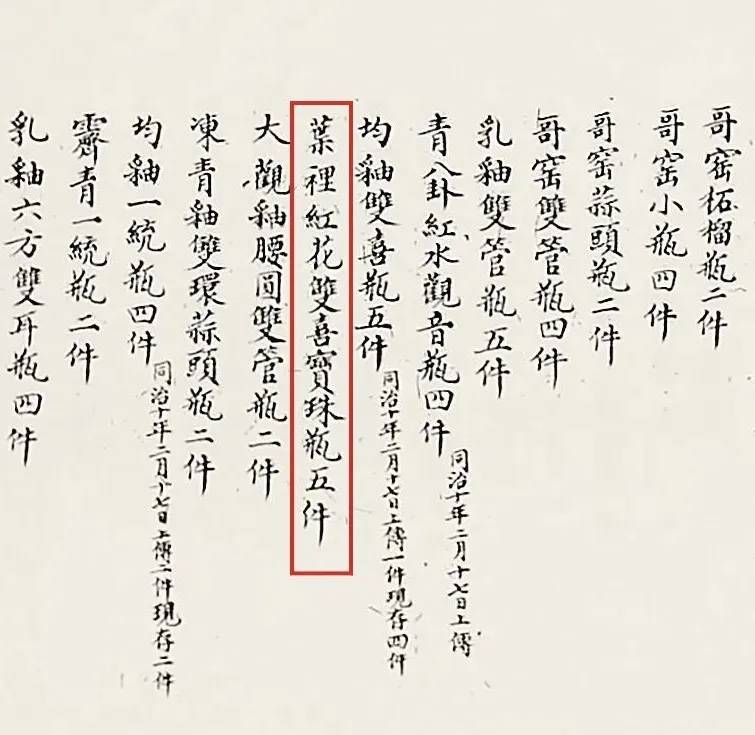 哥窑柘榴瓶二件
哥窑小瓶四件
哥窑蒜頭瓶二件
哥窑雙管瓶四件
乳釉雙管瓶五件
青八卦紅水觀音瓶四件 同治十年二月十七日上傳
均釉雙喜瓶五件 同治十年二月十七日上傳一件現存四件
葉裡紅花雙喜寶珠瓶五件
大觀釉腰圓雙管瓶二件
凍青釉雙環蒜頭瓶二件
均釉一統瓶四件 同治十年二月十七日上傳二件現存二件
霽青一統瓶二件
乳釉六方雙耳瓶四件